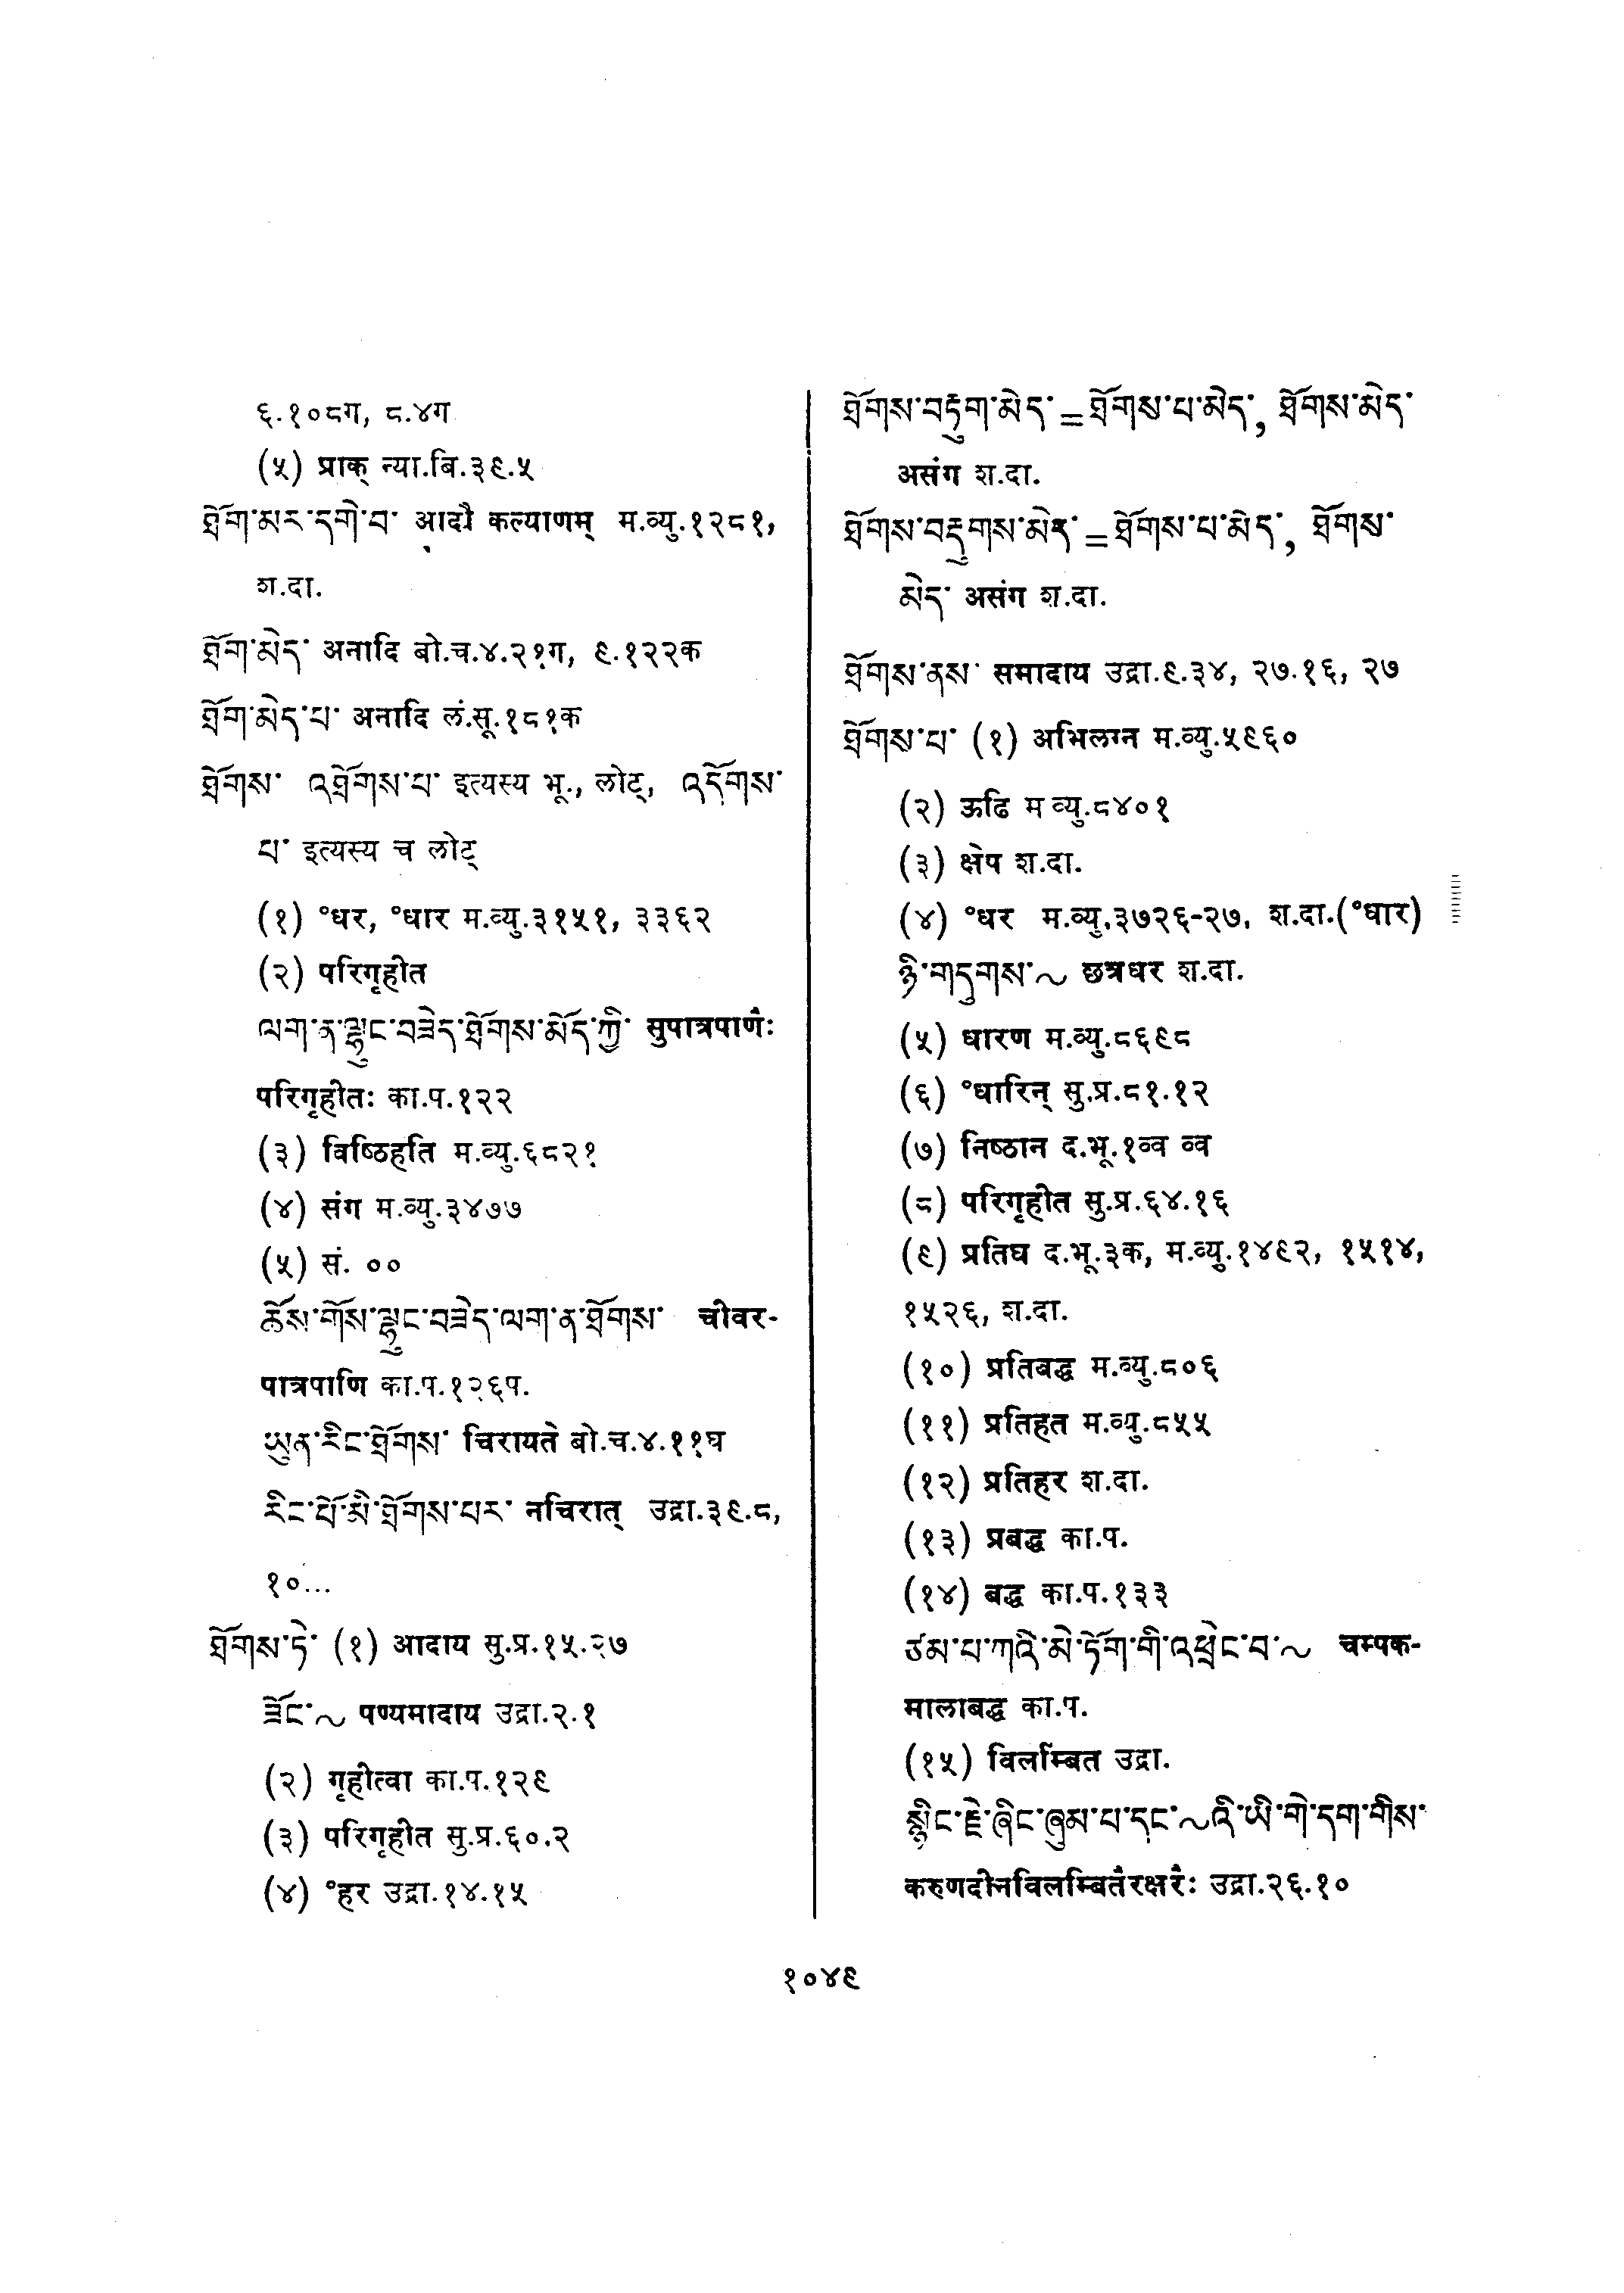 ६.१०८ग, ८.४ग
(५) प्राक् न्या.बि.३९.५
ཐོག་མར་དགེ་བ་ आदौ कल्याणम् म.व्यु.१२८१,
श.दा.
ཐོག་མེད་ अनादि बो.च.४.२१ग, ९.१२२क
ཐོག་མེད་པ་ अनादि लं.सू.१८१क
ཐོགས་ འཐོགས་པ་ इत्यस्य भू., लोट्, འདོགས་
པ་ इत्यस्य च लोट्
(१) °धर, °धार म.व्यु.३१५१, ३३६२
(२) परिगृहीत
ལག་ན་ལྷུང་བཟེད་ཐོགས་མོད་ཀྱི་ सुपात्रपाणैः
परिगृहीतः का.प.१२२
(३) विष्ठिहति म.व्यु.६८२१
(४) संग म.व्यु.३४७७
(५) सं. ००
ཆོས་གོས་ལྷུང་བཟེད་ལག་ན་ཐོགས་ चीवर-
पात्रपाणि का.प.१२६प.
ཡུན་རིང་ཐོགས་ चिरायते बो.च.४.११घ
རིང་པོ་མི་ཐོགས་པར་ नचिरात् उद्रा.३९.८,
१०...
ཐོགས་ཏེ་ (१) आदाय सु.प्र.१५.२७
ཟོང་~ पण्यमादाय उद्रा.२.१
(२) गृहीत्वा का.प.१२९
(३) परिगृहीत सु.प्र.६०.२
(४) °हर उद्रा.१४.१५
ཐོགས་བརྟུག་མེད་=ཐོགས་པ་མེད་, ཐོགས་མེད་
असंग श.दा.
ཐོགས་བརྡུགས་མེད་=ཐོགས་པ་མེད་, ཐོགས་
མེད་ असंग श.दा.
ཐོགས་ནས་ समादाय उद्रा.९.३४, २७.१६, २७
ཐོགས་པ་ (१) अभिलग्न म.व्यु.५९६०
(२) ऊढि म व्यु.८४०१
(३) क्षेप श.दा.
(४) °धर म.व्यु.३७२६-२७, श.दा.(°धार)
ཉི་གདུགས་~ छत्रधर श.दा.
(५) धारण म.व्यु.८६९८
(६) °धारिन् सु.प्र.८१.१२
(७) निष्ठान द.भू.१व्व व्व
(८) परिगृहीत सु.प्र.६४.१६
(९) प्रतिघ द.भू.३क, म.व्यु.१४९२, १५१४,
१५२६, श.दा.
(१०) प्रतिबद्ध म.व्यु.८०६
(११) प्रतिहत म.व्यु.८५५
(१२) प्रतिहर श.दा.
(१३) प्रबद्ध का.प.
(१४) बद्ध का.प.१३३
ཙམ་པ་ཀའི་མེ་ཏོག་གི་འཕྲེང་བ་~ चम्पक-
मालाबद्ध का.प.
(१५) विलम्बित उद्रा.
སྙིང་རྗེ་ཞིང་ཞུམ་པ་དང་~འི་ཡི་གེ་དག་གིས་
करुणदीनविलम्बितैरक्षरैः उद्रा.२६.१०
१०४९